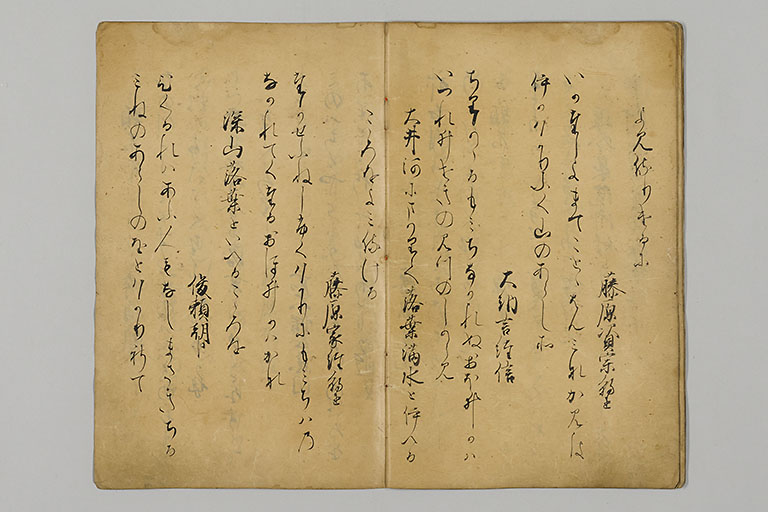 よみ侍りけるに
藤原資宗朝臣
いかたしよまてことゝはんみなかみは
いかはかりふく山のあらしそ
大納言経信
ちりかゝるもみちなかれぬおほ井かは
いつれ井せきの水のしからみ
大井河にまかりて落葉満水といへる
こゝろをよみ侍ける
藤原家経朝臣
たかせふねしふくはかりにもみちハの
なかれてくたるおほ井かはかな
深山落葉といへるこゝろを
俊頼朝臣
ひくるれハあふ人もなしまさきちる
みねのあらしのをとはかりして